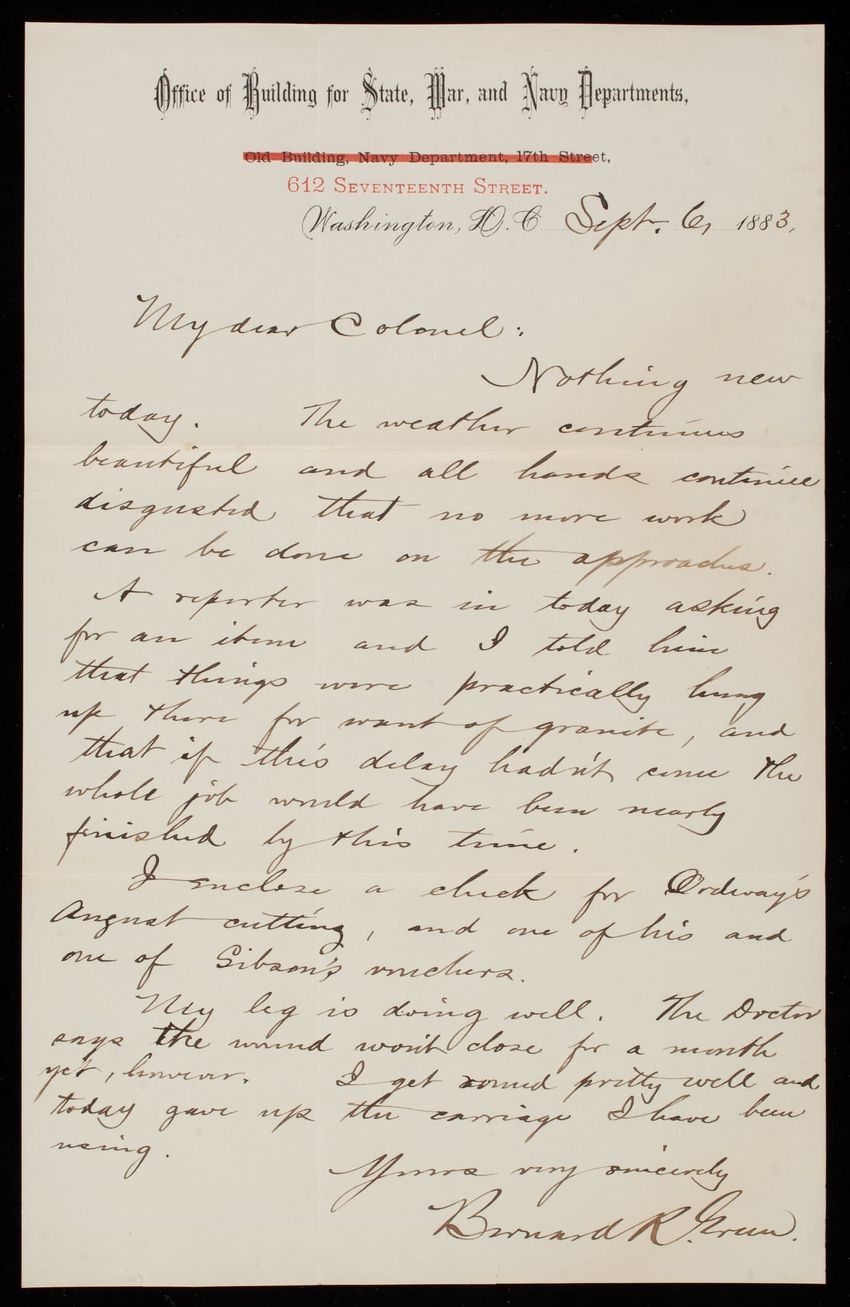 Office of Building for State, War, and Navy Departments,
Old Building, Navy Department, 17th Street,
612 SEVENTEENTH STREET.
Washington, D.C. Sept. 6, 1883,
My dear Colonel:
Nothing new
today. The weather continues
beautiful and all hands continue
disgusted that no more work
can be done on the approaches.
A reporter was in today asking
for an item and I told him
that things were practically hung
up there for want of granite, and
that if this delay hadn't come the
whole job would have been nearly
finished by this time.
I enclose a check for Ordway's
August cutting, and one of his and
one of Gibson's vouchers.
My leg is doing well. The Doctor
says the wound won't close for a month
yet, however. I get round pretty well and
today gave up the carriage I have been
using.
Yours very sincerely
Bernard R. Green.